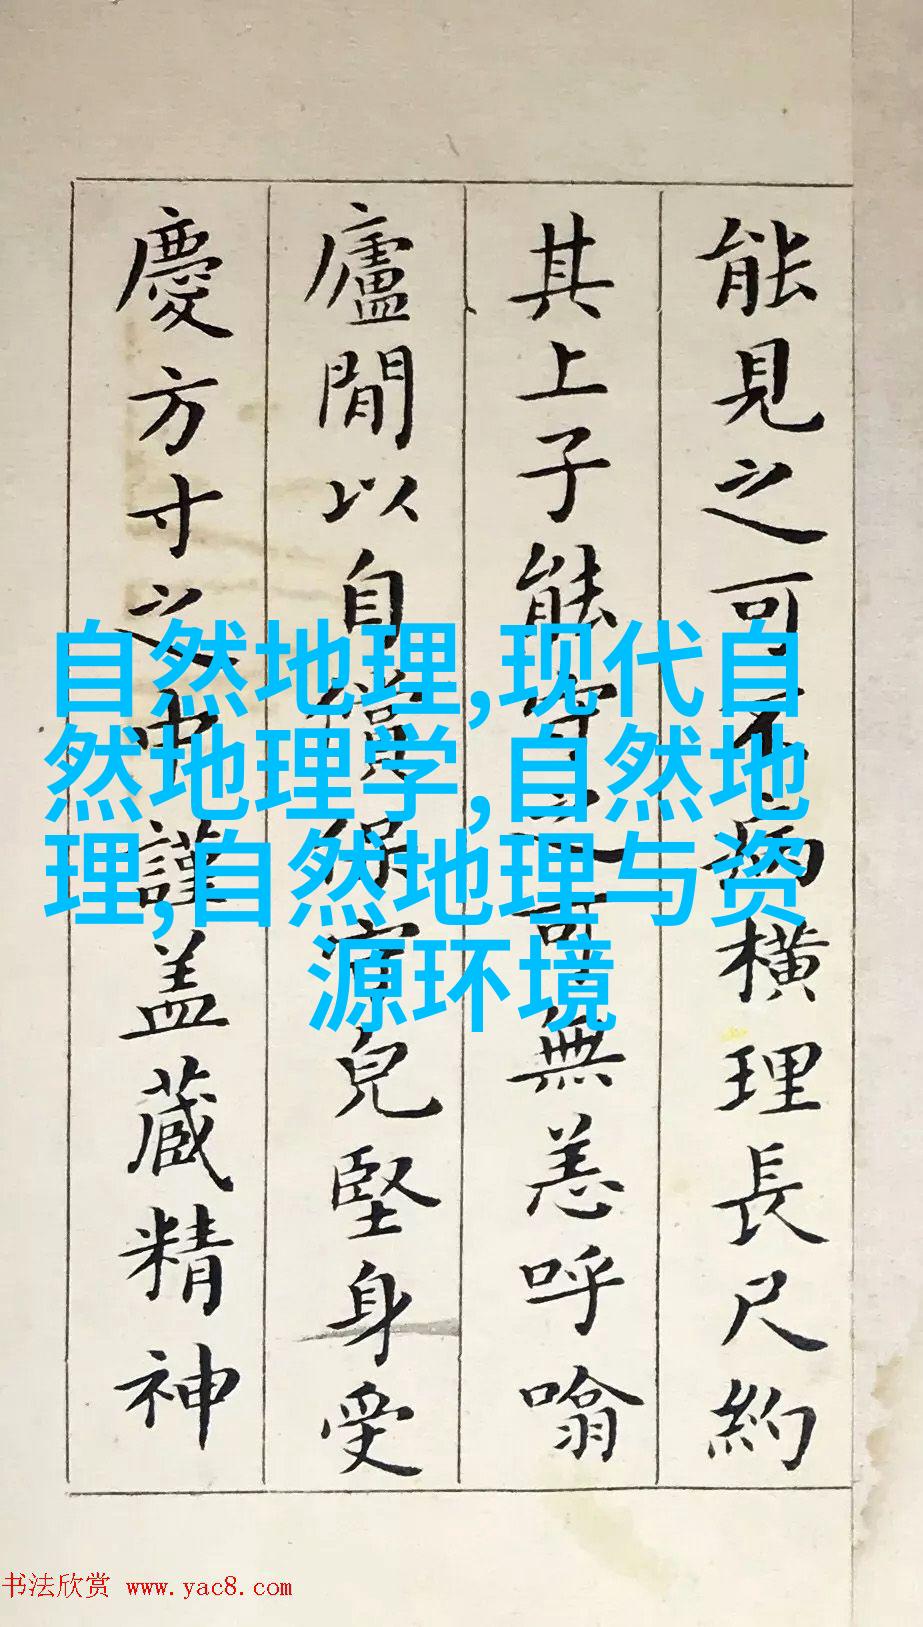 能見之可不病橫理長尺約
其上子能守之可無恙呼噏
廬間以自償保守兒堅身受
慶方寸之中謹盖藏精神
自然地理,现代自
然地理学,自然地
理,自然地理与资
源环境
书法欣赏 www.yac8.com